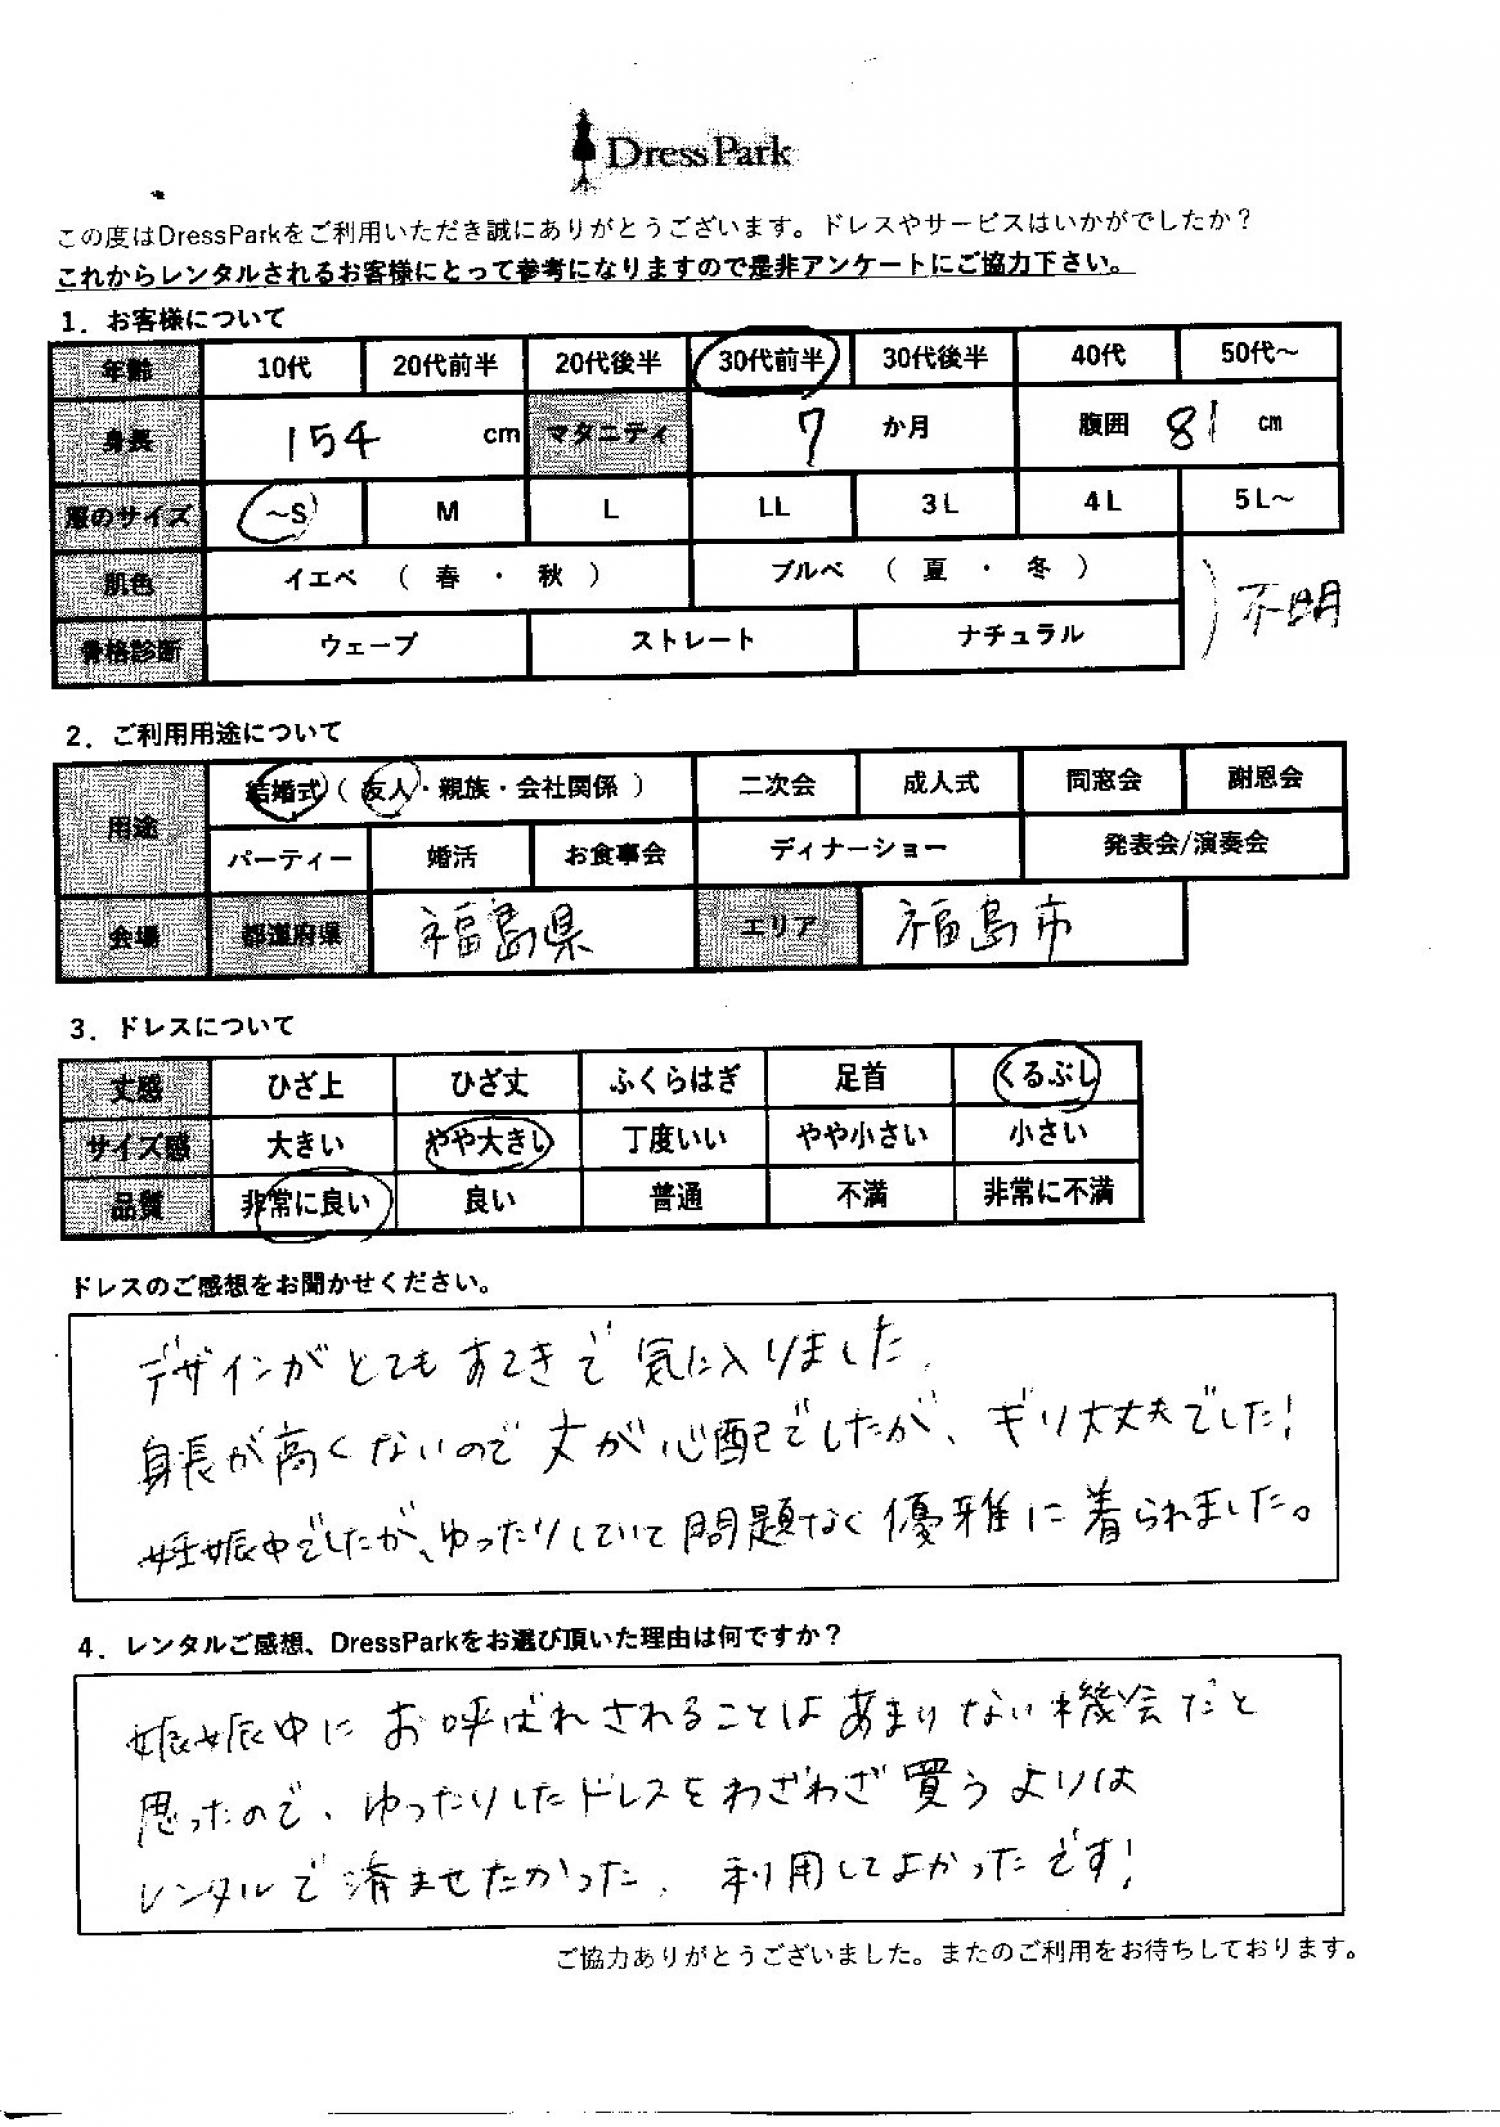 DressPark
この度はDressParkをご利用いただき誠にありがとうございます。ドレスやサービスはいかがでしたか？
これからレンタルされるお客様にとって参考になりますので是非アンケートにご協力下さい。
1．お客様について
年齢 10代 20代前半 20代後半 30代前半 30代後半 40代 50代～
身長 154 cm マタニティ 7 か月 腹囲 81 cm
服のサイズ ～S M L LL 3L 4L 5L～
肌色 イエベ （ 春 ・ 秋 ） ブルベ （ 夏 ・ 冬 ）
不明
骨格診断 ウェーブ ストレート ナチュラル
2．ご利用用途について
用途 結婚式（ 友人・親族・会社関係 ） 二次会 成人式 同窓会 謝恩会
パーティー 婚活 お食事会 ディナーショー 発表会/演奏会
会場 都道府県 福島県 エリア 福島市
3．ドレスについて
丈感 ひざ上 ひざ丈 ふくらはぎ 足首 くるぶし
サイズ感 大きい やや大きい 丁度いい やや小さい 小さい
品質 非常に良い 良い 普通 不満 非常に不満
ドレスのご感想をお聞かせください。
デザインがとてもすてきで気に入りました。
身長が高くないので丈が心配でしたが、ギリ大丈夫でした！
妊娠中でしたが、ゆったりしていて問題なく優雅に着られました。
4．レンタルご感想、DressParkをお選び頂いた理由は何ですか？
娠娠中にお呼ばれされることはあまりない機会だと
思ったので、ゆったりしたドレスをわざわざ買うよりは
レンタルで済ませたかった。利用してよかったです！
ご協力ありがとうございました。またのご利用をお待ちしております。